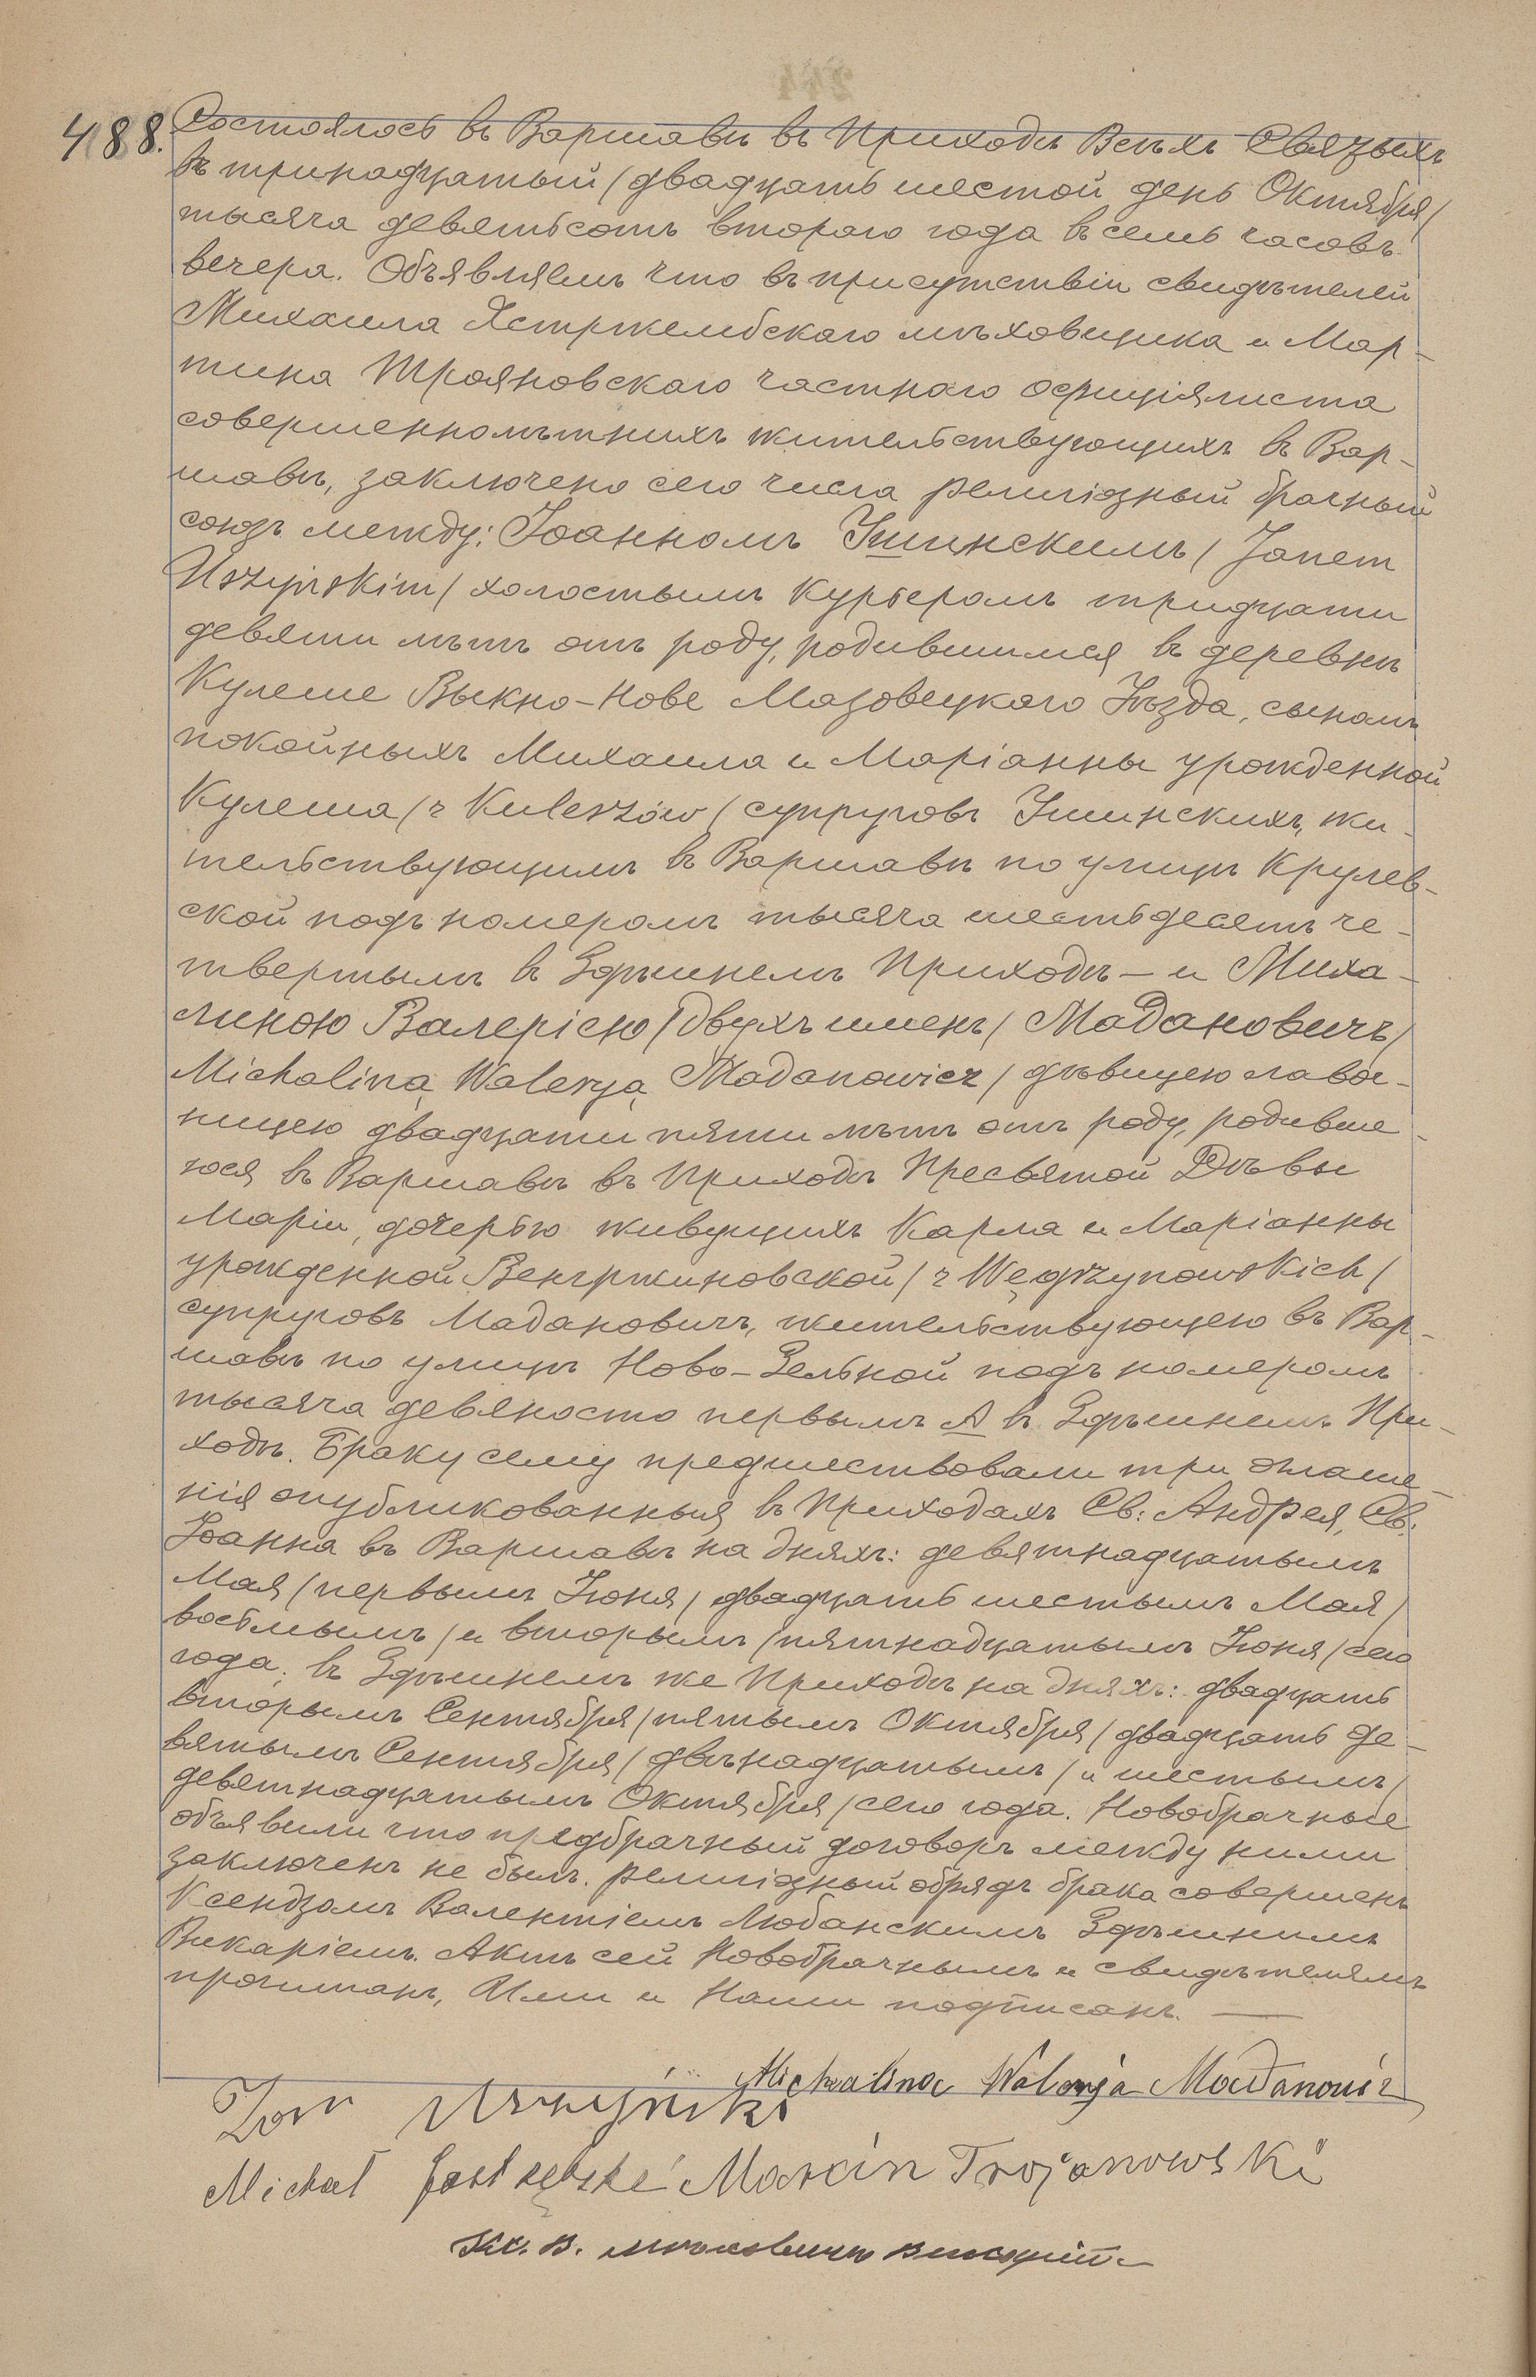 488. Состоялось въ Варшавѣ въ Приходѣ Всѣхъ Святыхъ
въ тринадцатый / двадцать шестой день Октября /
тысяча девятьсотъ втораго года въ семь часовъ
вечера. Объявляемъ что въ присутствіи свидѣтелей
Михаила Ястржембскаго мѣховщика и Мар-
тина Трояновскаго частнаго оффиціялиста
совершеннолѣтнихъ жительствующихъ въ Вар-
шавѣ, заключено сего числа религіозный брачный
союзъ между: Іоанномъ Ушинскимъ / Janem
Uszyńskim / холостымъ курьеромъ тридцати
девяти лѣтъ отъ роду, родившимся въ деревнѣ
Кулеше Выкно-Нове Мазовецкаго Уѣзда, сыномъ
покойныхъ Михаила и Маріанны урожденной
Кулеша / z Kuleszów / супруговъ Ушинскихъ, жи-
тельствующимъ въ Варшавѣ по улицѣ Крулев-
ской подъ номеромъ тысяча шестьдесятъ че-
твертымъ въ Здѣшнемъ Приходѣ — и Миха-
линою Валеріею / двухъ именъ / Маданович /
Michaliną Waleryą Madanowicz / дѣвицею лаво-
ницею двадцати пяти лѣтъ отъ роду, родивше-
юся въ Варшавѣ въ Приходѣ Пресвятой Дѣвы
Маріи, дочерью живущихъ Карла и Маріанны
урожденной Венгржиновской / z Węgrzynowskich /
супруговъ Мадановичъ, жительствующею въ Вар-
шавѣ по улицѣ Ново-Зельной подъ номеромъ
тысяча девяносто первымъ А въ Здѣшнемъ При-
ходѣ. Браку сему предшествовали три оглаше-
нія опубликованныя въ Приходахъ Св: Андрея, Св:
Іоанна въ Варшавѣ на дняхъ: девятнадцатымъ
Мая / первымъ Іюня / двадцать шестымъ Мая /
восьмымъ / и вторымъ / пятнадцатымъ Іюня / сего
года; въ Здѣшнемъ же Приходѣ на дняхъ: двадцать
вторымъ Сентября / пятымъ Октября / двадцать де-
вятымъ Сентября / двѣнадцатымъ / и шестымъ /
девятнадцатымъ Октября / сего года. Новобрачные
объявили что предбрачный договоръ между ними
заключенъ не былъ. Религіозный обрядъ брака совершенъ
Ксендзомъ Валентіемъ Любанскимъ Здѣшнимъ
Викаріемъ. Актъ сей Новобрачнымъ и свидѣтелямъ
прочитанъ, Ими и Нами подписанъ. —
Michalina Walerya Madanowicz
Jan Uszyński
Michał Jastrzębski Marcin Trojanowski
Кс. В.